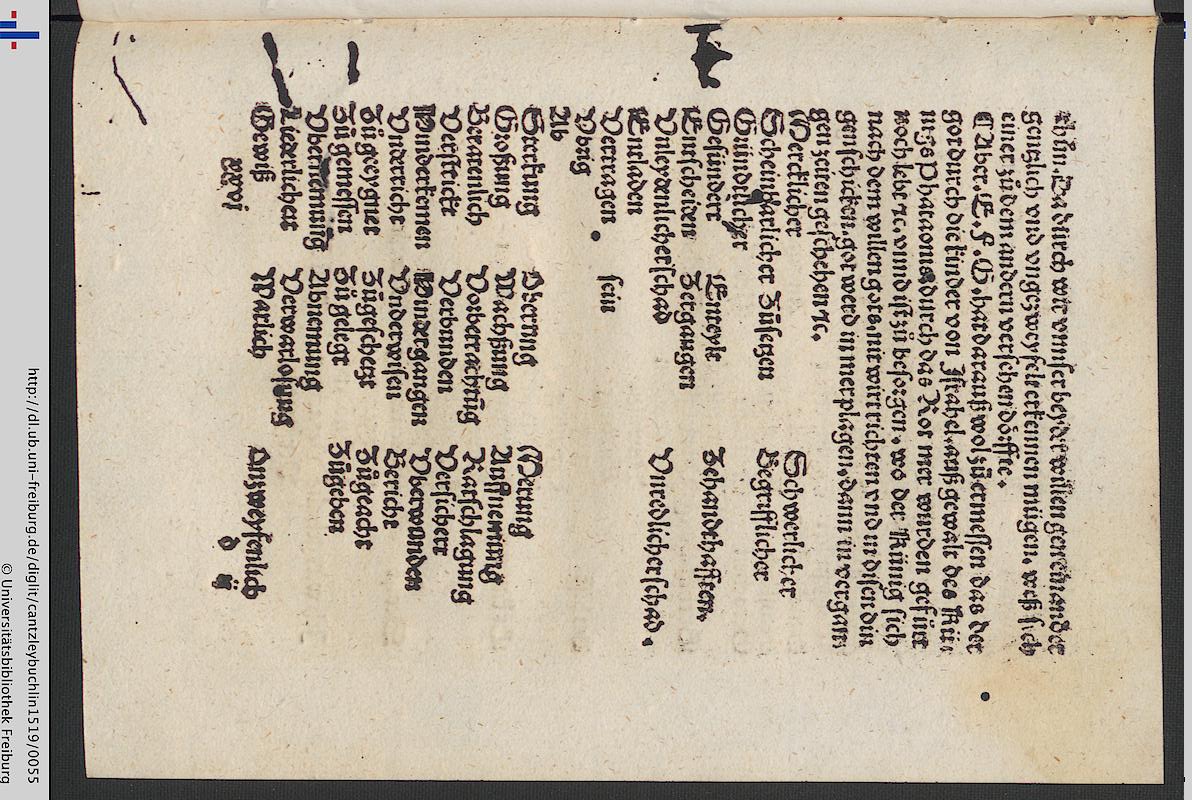 thůn. Da durch wir vnnser beyder willen geneinander
gentzlich vnd vngezweyfelt erkennen mügen. weß sich
einer zů dem andern versehen döffte.
¶ Aber. E. F. G. hat darauß wol zů ermessen das der
got durch die kinder von Israhel. auß gewalt des Kü-
nigs Pharaons durch das Rot mer wurden gefürt
noch lebt ꝛc. vnnd ist zů besorgen. wo der Künig sich
nach dem willen gots. nit wirt richten. vnd in disen din
gen schicken. got werd in mer plagen. dann in vergan
gen zeiten geschehen ꝛc.
¶ Mercklicher Schwerlicher
Scheinparlicher Zůsetzen Begrifflicher
Gründtlicher
Gesündert Enteylt Zehandthafften.
Entscheiden Zergangen
Vnleydenlicher schad Vnredlicher schad.
Entladen
Vertragen sein
Vbrig
Ab
Sterckung Oberung ¶ Werung
Großung Wachßung Auffnemung
Berathenlich Vorbetrachtūg Ratschlagung
Verstrickt Verbunden Versichert
Hinderkomen Hindergangen Vberwunden
Vnderricht Vnderwisen Bericht
Zůgeeygnet Zůgescheyt Zůgeacht
Zůgemessen Zůgelegt Zůgeben
Vbernemung Abnemung
Liederlicher Verwarlosung
Gewiß Warlich Onzweyfenlich
d ij
http://dl.ub.uni-freiburg.de/diglit/cantzleybuchlin1519/0055
© Universitätsbibliothek Freiburg